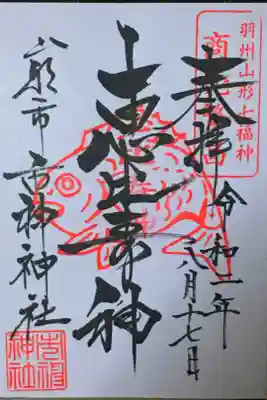 羽州山形七福神
奉拝
令和二年
八月十七日
恵比寿神
山形市 市神神社
市神神社